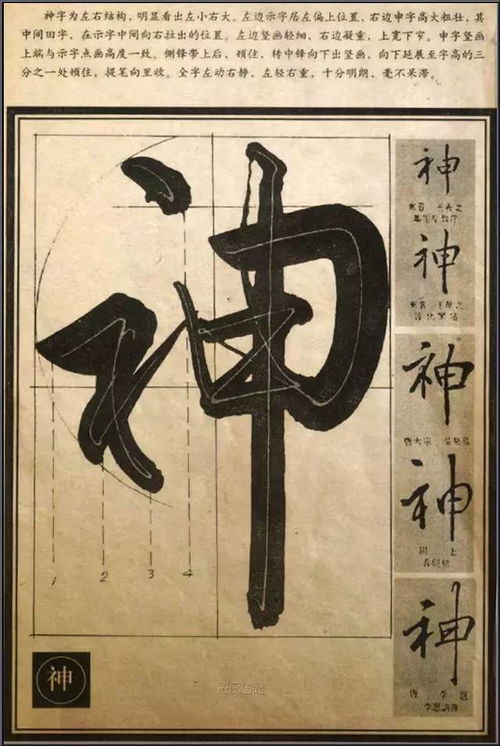 神字为左右结构，明显看出左小右大。左边示字居左偏上位置，右边申字高大粗壮，其
中间田字，在示字中间向右拉出的位置。左边竖画轻细，右边凝重，上宽下窄。申字竖画
上端与示字点画高度一致。侧锋带上后，顿住，转中锋向下出竖画，向下延展至字高的三
分之一处顿住，提笔向里收。全字左动右静，左轻右重，十分明朗，毫不呆滞。
神
神
神
神
唐太宗
神
同上
神
唐 李邕
李思训碑
1 2 3 4
神